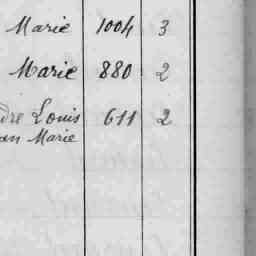 Marie 1004 3
Marie 880 2
dre Louis 611 2
an Marie